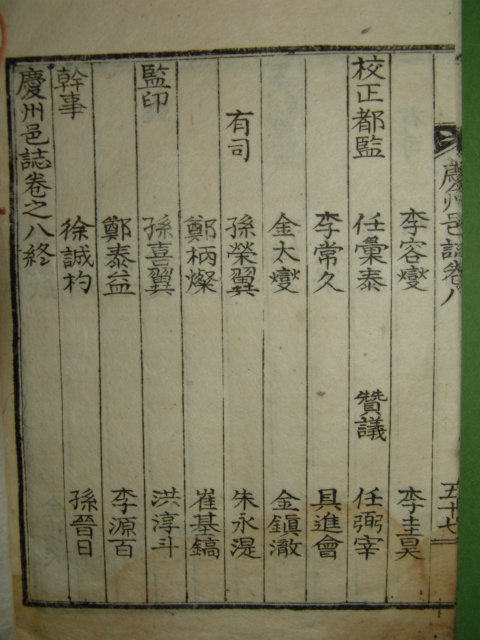 慶州邑誌卷八 五十七
李容燮 李圭昊
校正都監 任 泰 贊議 任弼宰
李常久 具進會
金太燮 金鎭澈
有司 孫榮翼 朱永湜
鄭柄燦 崔基鎬
監印 孫喜翼 洪淳斗
鄭泰益 李源百
幹事 徐誠杓 孫晉日
慶州邑誌卷之八終